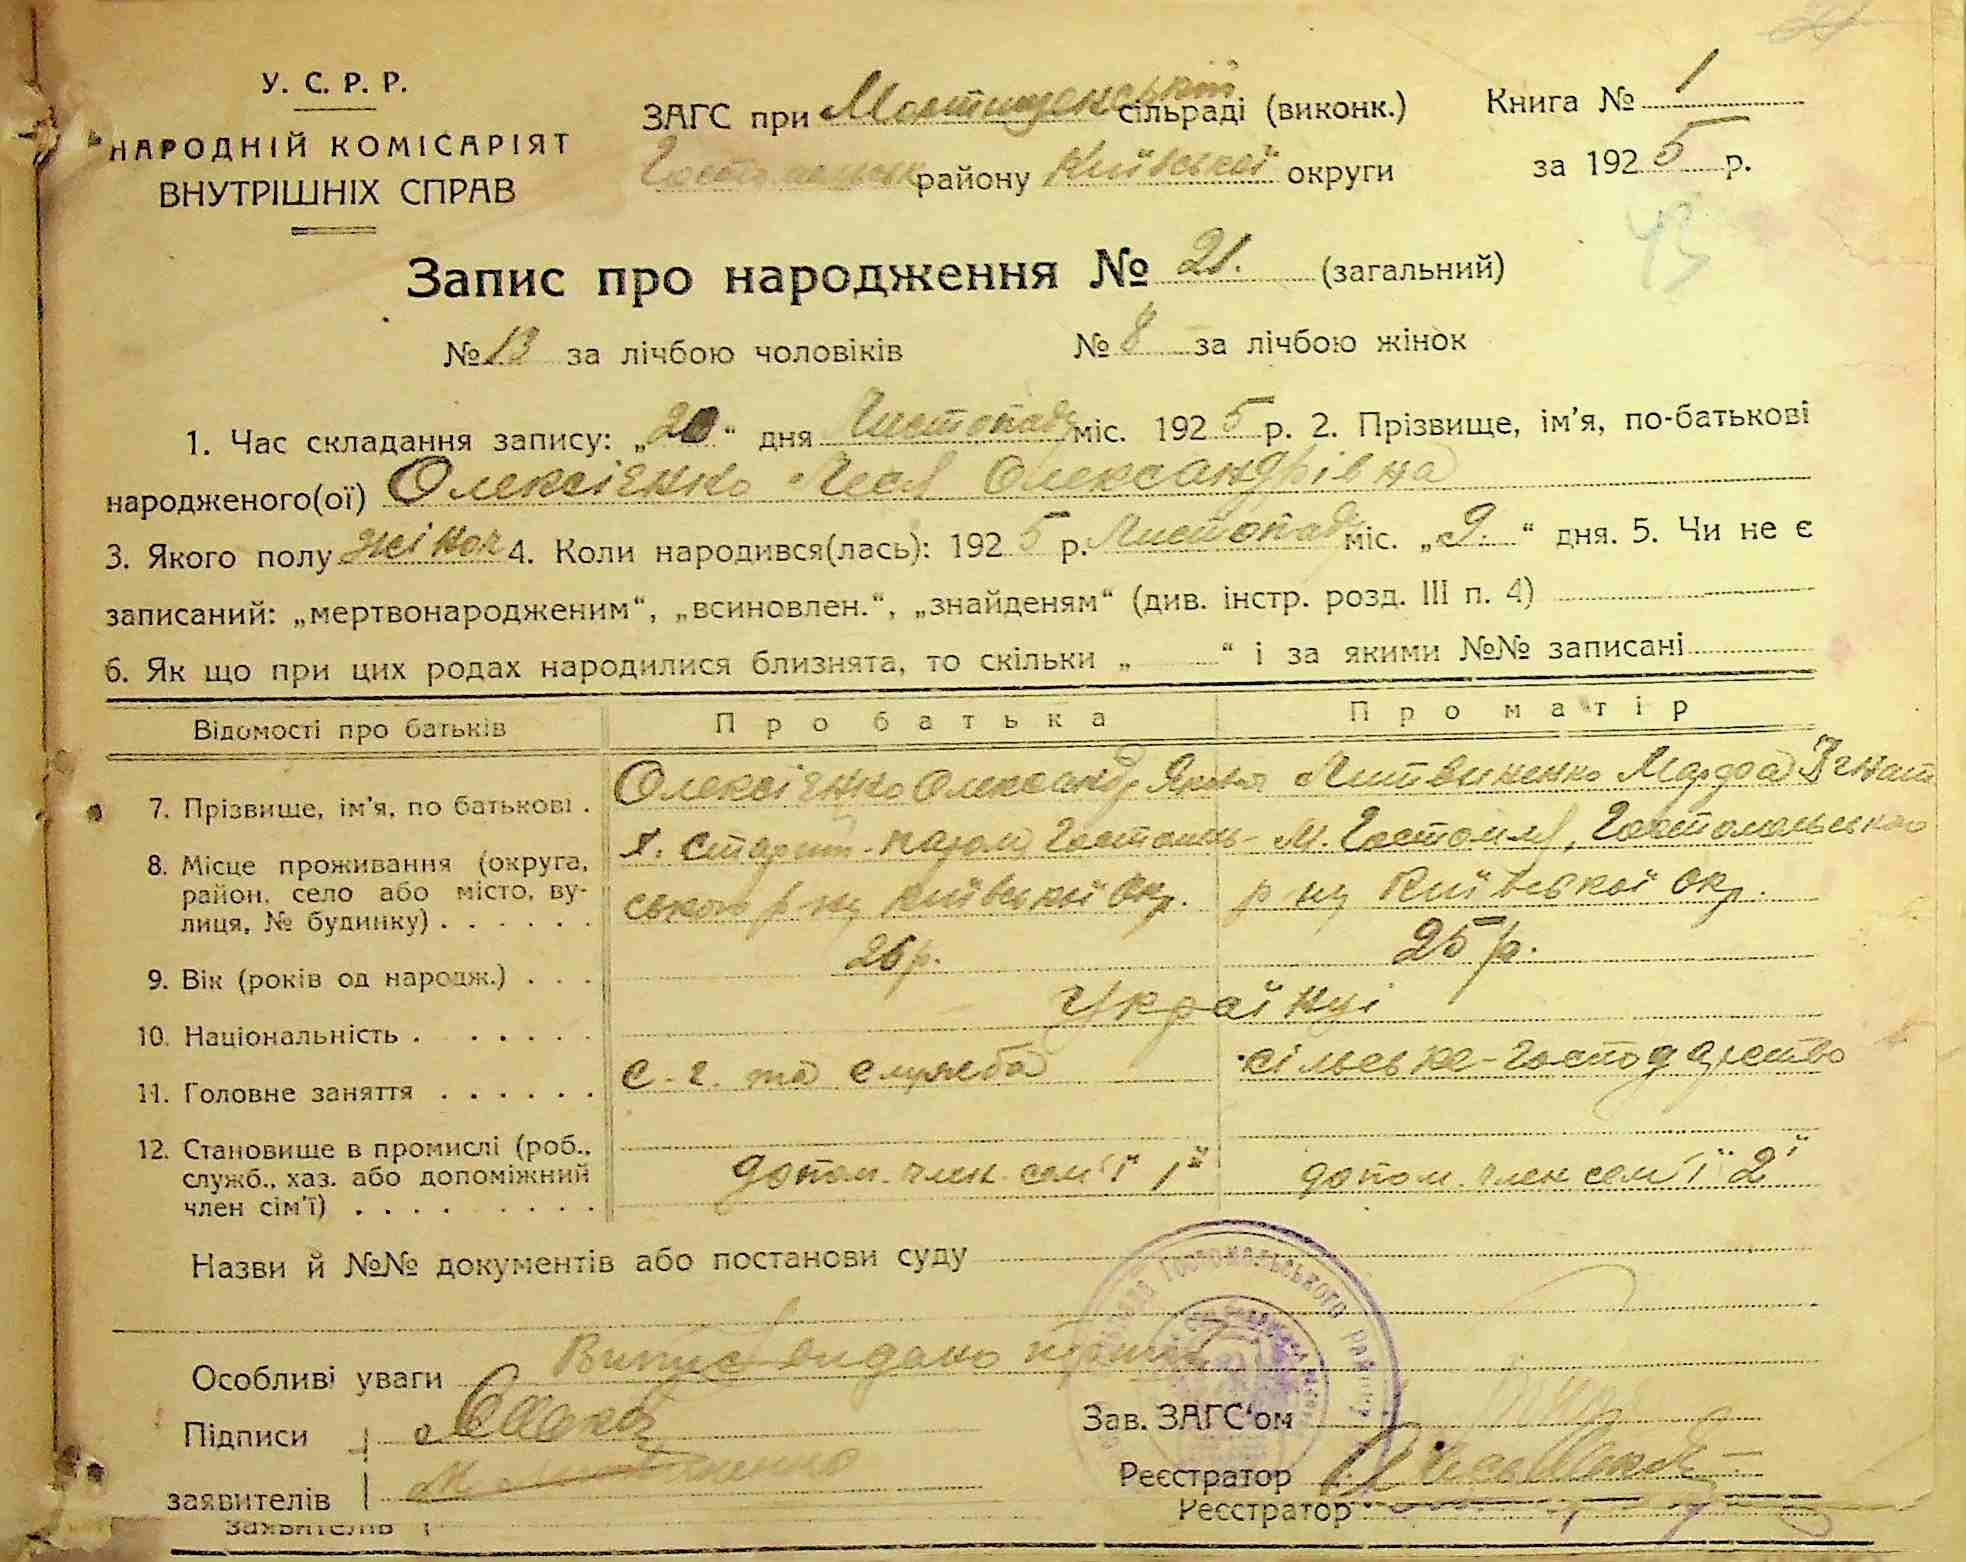 У. С. Р. Р.
НАРОДНІЙ КОМІСАРІЯТ
ВНУТРІШНІХ СПРАВ
ЗАГС при сільраді (виконк.)
району Київської округи
Книга № 1
за 1925 р.
43
Запис про народження № 21. (загальний)
№ 13 за лічбою чоловіків № 8 за лічбою жінок
1. Час складання запису: „20“ дня Листопад міс. 1925 р. 2. Прізвище, ім'я, по-батькові
народженого(ої) Олексієнко Леся Олександрівна
3. Якого полу жіноч 4. Коли народився(лась): 1925 р. Листопад міс. „9.“ дня. 5. Чи не є
записаний: „мертвонародженим“, „всиновлен.“, „знайденям“ (див. інстр. розд. III п. 4)
6. Як що при цих родах народилися близнята, то скільки „ “ і за якими №№ записані
Відомості про батьків Про батька Про матір
7. Прізвище, ім'я, по батькові . Олексієнко Олександр Яков Литвиненко Марфа Ігнат
8. Місце проживання (округа, район, село або місто, вулиця, № будинку) . . . . . .
х. Гостомель- М. Гостомля, Гостомельського
ського р-ну Київської Окр. р-ну Київської Окр.
9. Вік (років од народж.) . . . 26 р. 25 р.
10. Національність . . . . . . Українці
11. Головне заняття . . . . . . с.-г. та служба сільське-господарство
12. Становище в промислі (роб., служб., хаз. або допоміжний член сім'ї) . . . . . . . . .
допом. член сем'ї „1" допом. член сем'ї „2"
Назви й №№ документів або постанови суду
Особливі уваги Випис видано
Підписи
заявителів
Зав. ЗАГС'ом
Реєстратор
Реєстратор
заявителів
Гостомельського району